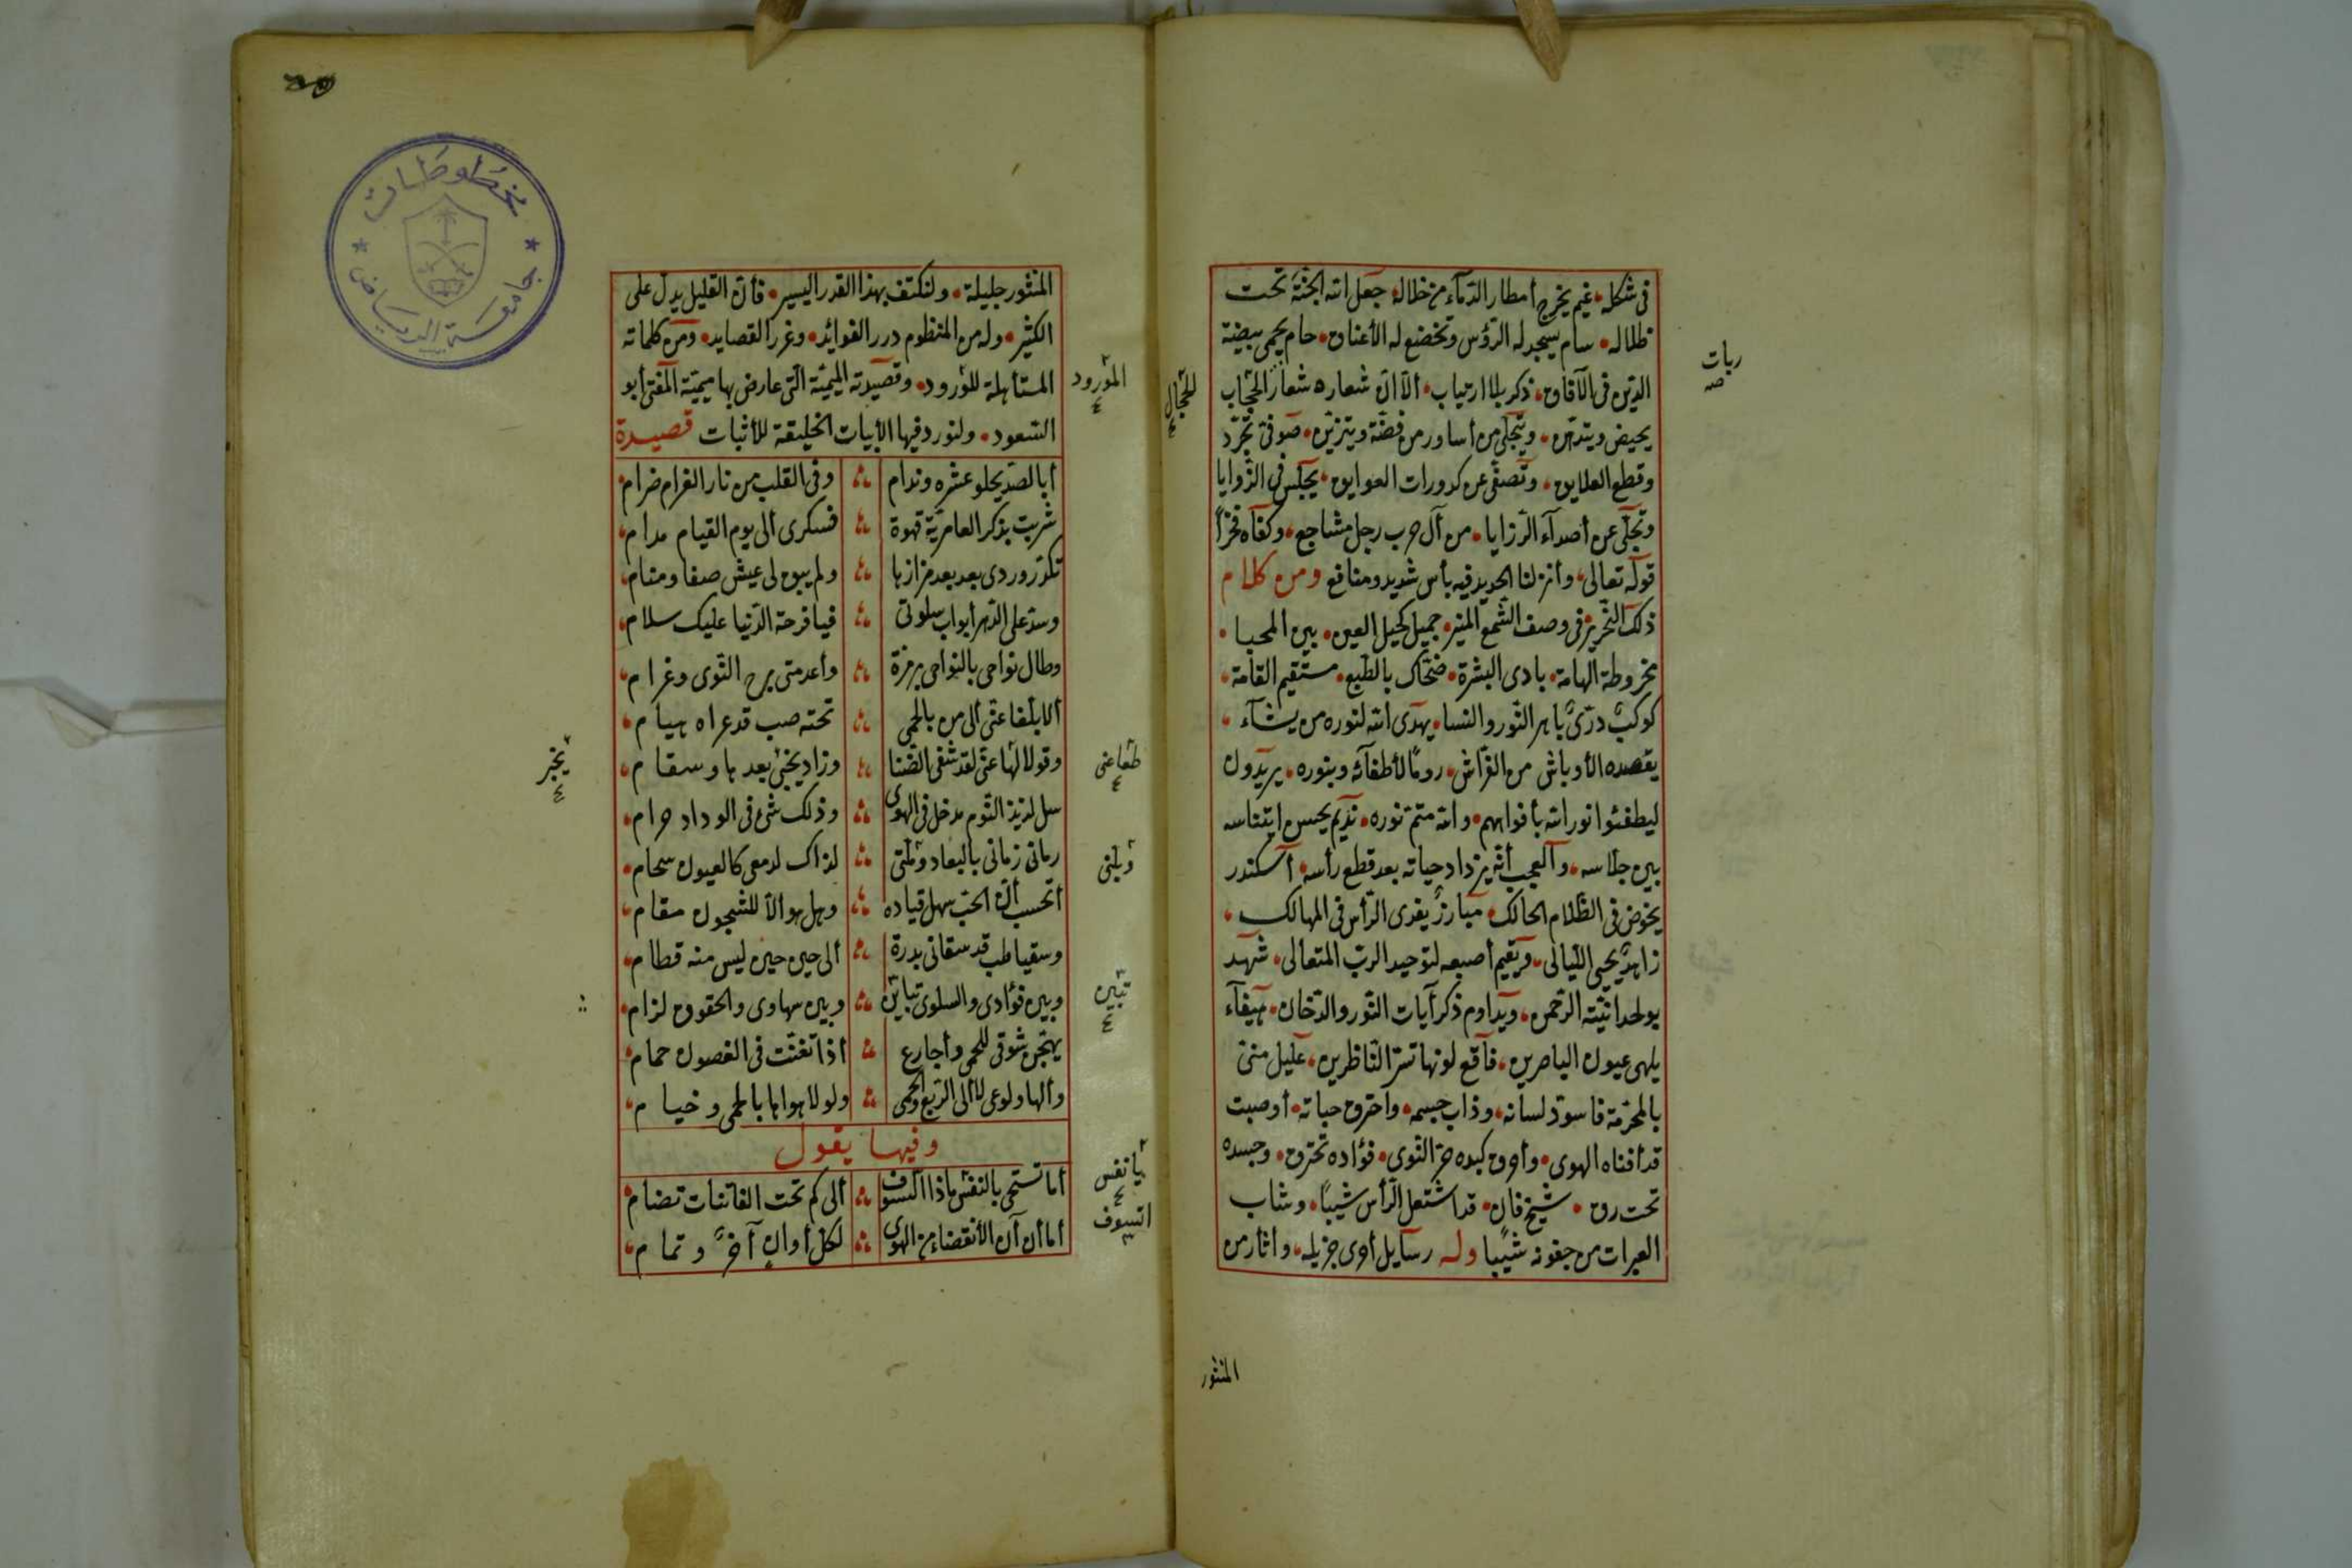 فى شكله، غيم يخرج أمطار الدماء من خلاله، جعل الله الجنة تحت
ظلاله، سام يسجد له الرؤس وتخضع له الأعناق، حام يحمى ببيضة
الدين فى الآفاق، ذكر بلا ارتياب، ألا ان شعاره شعار الحجاب
يحيض ويتدهن، ويتحلى من أساور من فضة ويتزين، صوفى تجرد
وقطع العلايق، وتصفى عن كدورات العوايق، يجلس فى الزوايا
وتجلى عن أصدآء الرزايا، من آل حرب رجل مشاجع، وكفاه فخرا
قوله تعالى، وأنزلنا الحديد فيه بأس شديد ومنافع ومن كلام
ذلك النحرير فى وصف الشمع المنير، جميل كحيل العين، بين المحيا،
مخروطة الهامة، بادى البشرة، ضحاك بالطبع، مستقيم القامة،
كوكب درى باهر النور والسنا، يهدى الله لنوره من يشآء،
يقصده الأوباش من الفراش، روما لأطفآئه وبنوره، يريدون
ليطفئوا نور الله بأفواههم، والله متم نوره، نديم يحسن ايتناسه
بين جلاسه، والعجب أنه يزداد حياته بعد قطع رأسه، اسكندر
يخوض فى الظلام الحالك، مبارز يفدى الرأس فى المهالك،
زاهد يحيى الليالى، ويقيم أصبعه لتوحيد الرب المتعالى، شهد
بوحدانيته الرحمن، ويداوم ذكر آيات النور والدخان، هيفآء
يلهى عيون الباصرين، فاقع لونها تسر الناظرين، عليل منى
بالمحرمة فاسود لسانه، وذاب جسمه، واحترق حياته، أوصبت
قد أفناه الهوى، وأحرق كبده حر النوى، فؤاده تحترق، وجسده
تحت رق، شيخ فان، قد اشتعل الرأس شيبا، وشاب
العبرات من جفونه شيبا وله رسايل أوى جزيله، وأثار من
المنثور
ربات
صه
للحجال
المنثور جليلة، ولنكتف بهذا القدر اليسير، فأن القليل يدل على
الكثير، وله من المنظوم درر الفوائد، وغرر القصايد، ومن كلماته
المستأهلة للؤرود، وقصيدته الميمية التى عارض بها ميمية المفتى أبو
السعود، ولنورد فيها الأبيات الخليقة للأثبات قصيدة
أبا لصد يحلو عشره وندام وفى القلب من نار الغرام ضرام
شربت بذكر العامرية قهوة فسكرى ألى يوم القيام مدام
تكدر وردى بعد بعد مزارها ولم يبق لى عيش صفا ومنام
وسد على الدهر أبواب سلوتى فيا فرحة الدنيا عليك سلام
وطال نواحى بالنواحى برهزة وأعدمتى برح النوى وغرام
ألا بلغا عنى ألى من بالحمى تحته صب قد عراه هيام
وقولا لها عنى لقد شفى الضنا وزاد يخبى بعدها وسقام
سل لذيذ النوم مدخل فى الهوى وذلك شئ فى الوداد حرام
رمانى زمانى بالبعاد وملتى لذاك لدمعى كالعيون سجام
أتحسب أن الحب سهل قياده وهل هو ألا للشجون مقام
وسقيا طب قد سقانى بدرة ألى حين حين ليس منه قطام
وبين فؤادى والسلوى تباين وبين سهادى والحقوق لزام
يهجن شوقى للحمى وأجارع أذا تغنت فى الغصون حمام
وألها ولوعى لا ألى الربع والحمى ولولا هواها بالحمى وخيام
وفيها يقول
أما تستحى بالنفس ماذا التسوف ألى كم تحت الفاتنات تضام
أما أن آن الأنقضاء من الهوى لكل أوان آخر وتمام
المؤرود
طعاعنى
وبلنى
تبين
يا نفس
التسوف
يخبر
مخطوطات
جامعة الرياض